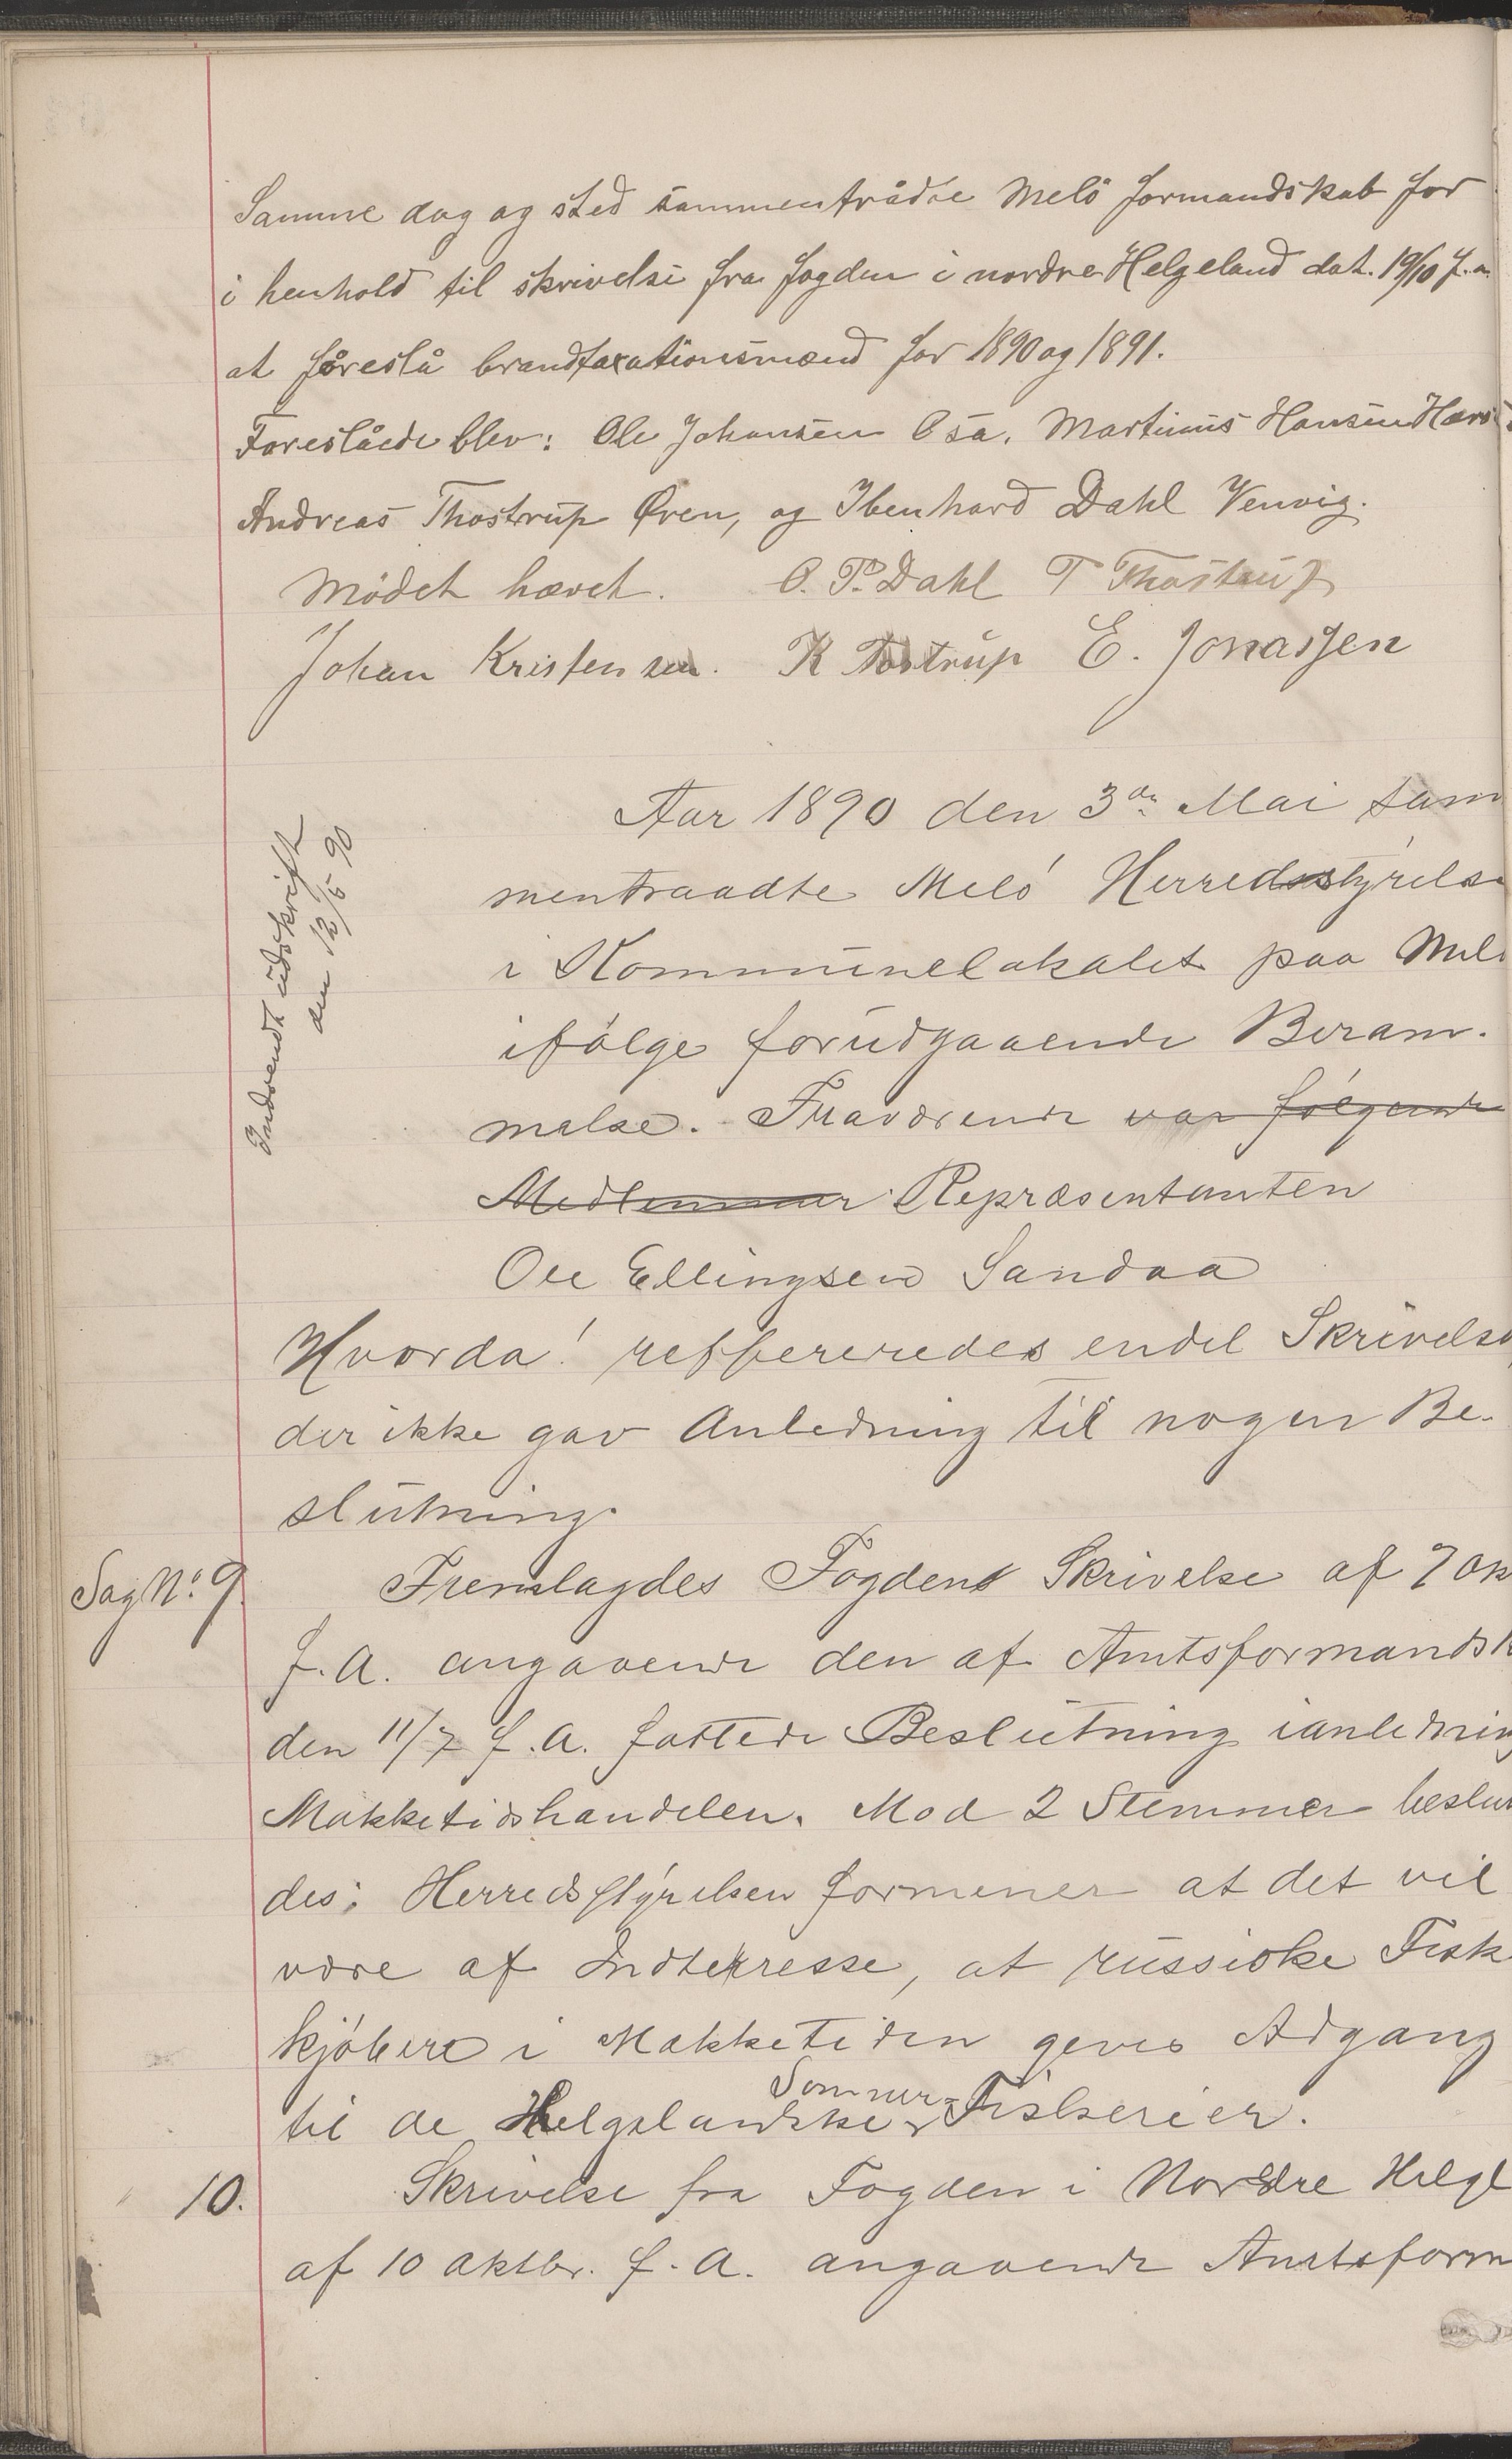 Samme dag og sted sammentrådte Melö formandskab for
i henhold til skrivelse fra fogden i nordre Helgeland dat. 19/10 f. a.
at foreslå brandtaxationsmænd for 1890 og 1891.
Foreslåede blev: Ole Johansen Osa, Martinus Hansen
Andreas Thostrup Øren, og Ibenhard Dahl Venvig.
Mödet hævet. O. P. Dahl T Thostrup
Johan Kristensen. K Tostrup E. Jonassen
Aar 1890 den 3die Mai sam
mentraadte Melö Herredsstyrelse
i Kommunelokalet paa Melö
ifölge forudgaaende Beram-
melse. Fraværende var fölgende
Medlemmer Repræsentanten
Ole Ellingsen Sandaa
Hvorda! reffereredes endel Skrivelse
der ikke gav Anledning til nogen Be-
slutning.
Indsendt udskrift
den 12/5 90
Sag No. 9
Fremlagdes Fogdens Skrivelse af 7 Ok
f. A. angaaende den af Amtsformandsk
den 11/7 f. A. fattede Beslutning ianledning
Makketidshandelen. Mod 2 Stemmer beslut
des: Herredsstyrelsen formener at det vil
være af Indterresse, at russiske Fisk
kjöbere i Makketiden geves Adgang
til de Helgelandske Sommer-Fiskerier.
10.
Skrivelse fra Fogden i Nordre Helgl
af 10 oktbr. f. A. angaaende Amtsform